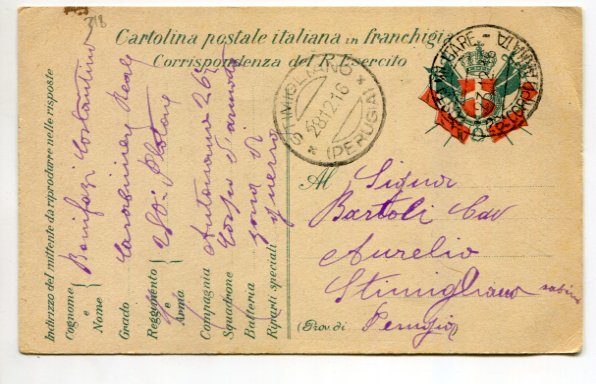 318
Cartolina postale italiana in franchigia
Corrispondenza del R. Esercito
STIMIGLIANO
28.12.16
* (PERUGIA) *
POSTA MILITARE
ARMATA
Indirizzo del mittente da riprodurre nelle risposte
Cognome e Nome
Bonifazi Costantino
Grado
Carabiniere Reale
Reggimento e Arma
280° Plotone
Compagnia
Autonomo 26°
Squadrone
Corpo d'armata
Batteria
zona di
Riparti speciali
guerra
Al Signor
Bartoli Cav
Aurelio
Stimigliano sabino
(Prov. di Perugia